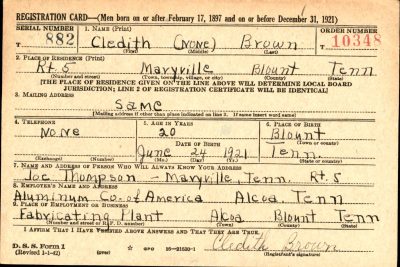 REGISTRATION CARD—(Men born on or after February 17, 1897 and on or before December 31, 1921)
SERIAL NUMBER 1. NAME (Print) ORDER NUMBER
T 882 Cledith (NONE) Brown 10348
(First) (Middle) (Last)
2. PLACE OF RESIDENCE (Print)
Rt. 5 Maryville Blount Tenn
(Number and street) (Town, township, village, or city) (County) (State)
[THE PLACE OF RESIDENCE GIVEN ON THE LINE ABOVE WILL DETERMINE LOCAL BOARD
JURISDICTION; LINE 2 OF REGISTRATION CERTIFICATE WILL BE IDENTICAL]
3. MAILING ADDRESS
Same
[Mailing address if other than place indicated on line 2. If same insert word same]
4. TELEPHONE 5. AGE IN YEARS 6. PLACE OF BIRTH
None 20 Blount
DATE OF BIRTH (Town or county)
June 24 1921 Tenn.
(Exchange) (Number) (Mo.) (Day) (Yr.) (State or country)
7. NAME AND ADDRESS OF PERSON WHO WILL ALWAYS KNOW YOUR ADDRESS
Joe Thompson — Maryville, Tenn. Rt. 5
8. EMPLOYER'S NAME AND ADDRESS
Aluminum Co. of America Alcoa, Tenn
9. PLACE OF EMPLOYMENT OR BUSINESS
Fabricating Plant Alcoa Blount Tenn
(Number and street or R. F. D. number) (Town) (County) (State)
I AFFIRM THAT I HAVE VERIFIED ABOVE ANSWERS AND THAT THEY ARE TRUE.
D. S. S. Form 1 GPO 16—21630-1 Cledith Brown
(Revised 1-1-42) (Registrant's signature)